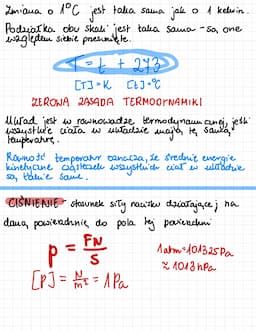 Zmiana o 1°C jest taka sama jak o 1 kelwin.
Podziałka obu skali jest taka sama - są one
względem siebie przesunięte.
T = t + 273
[T] = K [t] = °C
ZEROWA ZASADA TERMODYNAMIKI
Układ jest w równowadze termodynamicznej, jeśli
wszystkie ciała w układzie mają tę samą
temperaturę.
Równość temperatur oznacza, że średnie energie
kinetyczne cząsteczek wszystkich ciał w układzie
są takie same.
CIŚNIENIE - stosunek siły nacisku działającej na
daną powierzchnię do pola tej powierzchni
p = FN / S
1 atm = 101325 Pa
≈ 1013 hPa
[p] = N/m² = 1 Pa